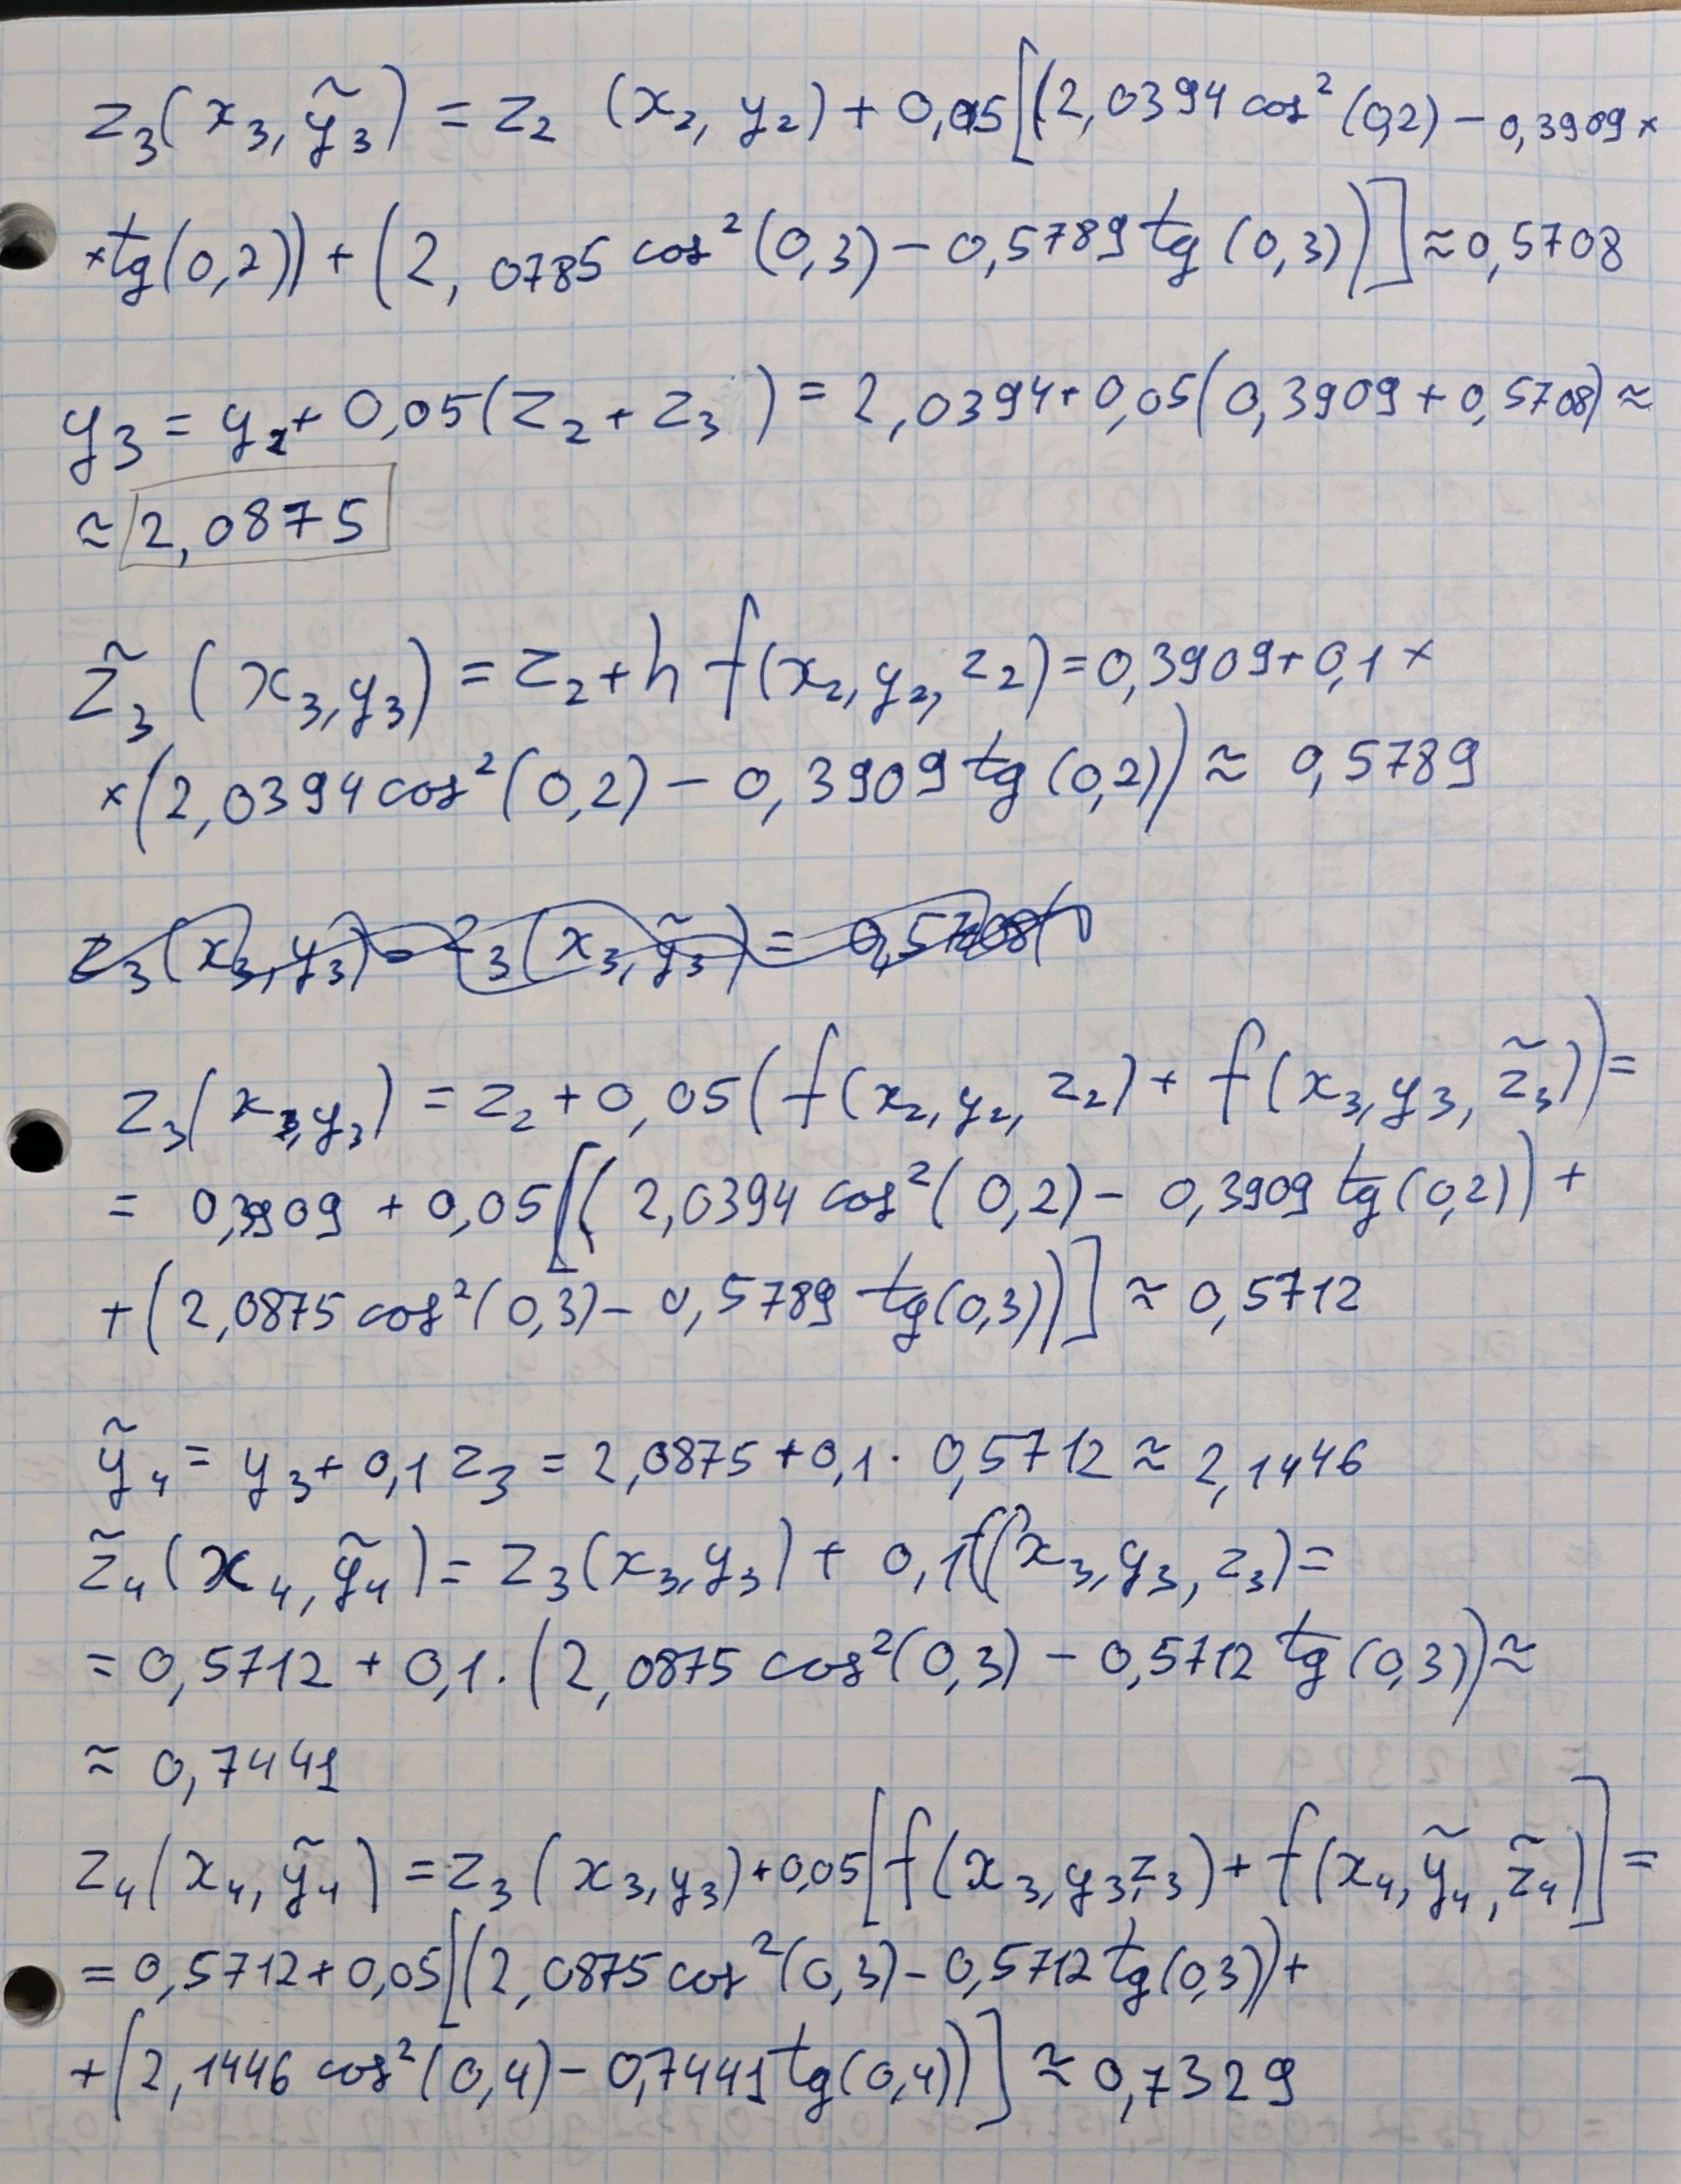 z₃(x₃, ỹ₃) = z₂ (x₂, y₂) + 0,05[(2,0394 cos²(0,2) − 0,3909 ×
× tg(0,2)) + (2,0785 cos²(0,3) − 0,5789 tg(0,3))] ≈ 0,5708
y₃ = y₂ + 0,05(z₂ + z₃) = 2,0394 + 0,05(0,3909 + 0,5708) ≈
≈ 2,0875
z̃₃ (x₃, y₃) = z₂ + h f(x₂, y₂, z₂) = 0,3909 + 0,1 ×
× (2,0394 cos²(0,2) − 0,3909 tg(0,2)) ≈ 0,5789
z₃(x₃, y₃) = z₃(x₃, ỹ₃) = 0,5708
z₃(x₃, y₃) = z₂ + 0,05(f(x₂, y₂, z₂) + f(x₃, y₃, z̃₃)) =
= 0,3909 + 0,05[(2,0394 cos²(0,2) − 0,3909 tg(0,2)) +
+ (2,0875 cos²(0,3) − 0,5789 tg(0,3))] ≈ 0,5712
ỹ₄ = y₃ + 0,1 z₃ = 2,0875 + 0,1 · 0,5712 ≈ 2,1446
z̃₄(x₄, ỹ₄) = z₃(x₃, y₃) + 0,1f(x₃, y₃, z₃) =
= 0,5712 + 0,1 · (2,0875 cos²(0,3) − 0,5712 tg(0,3)) ≈
≈ 0,7441
z₄(x₄, ỹ₄) = z₃(x₃, y₃) + 0,05[f(x₃, y₃, z₃) + f(x₄, ỹ₄, z̃₄)] =
= 0,5712 + 0,05[(2,0875 cos²(0,3) − 0,5712 tg(0,3)) +
+ (2,1446 cos²(0,4) − 0,7441 tg(0,4))] ≈ 0,7329